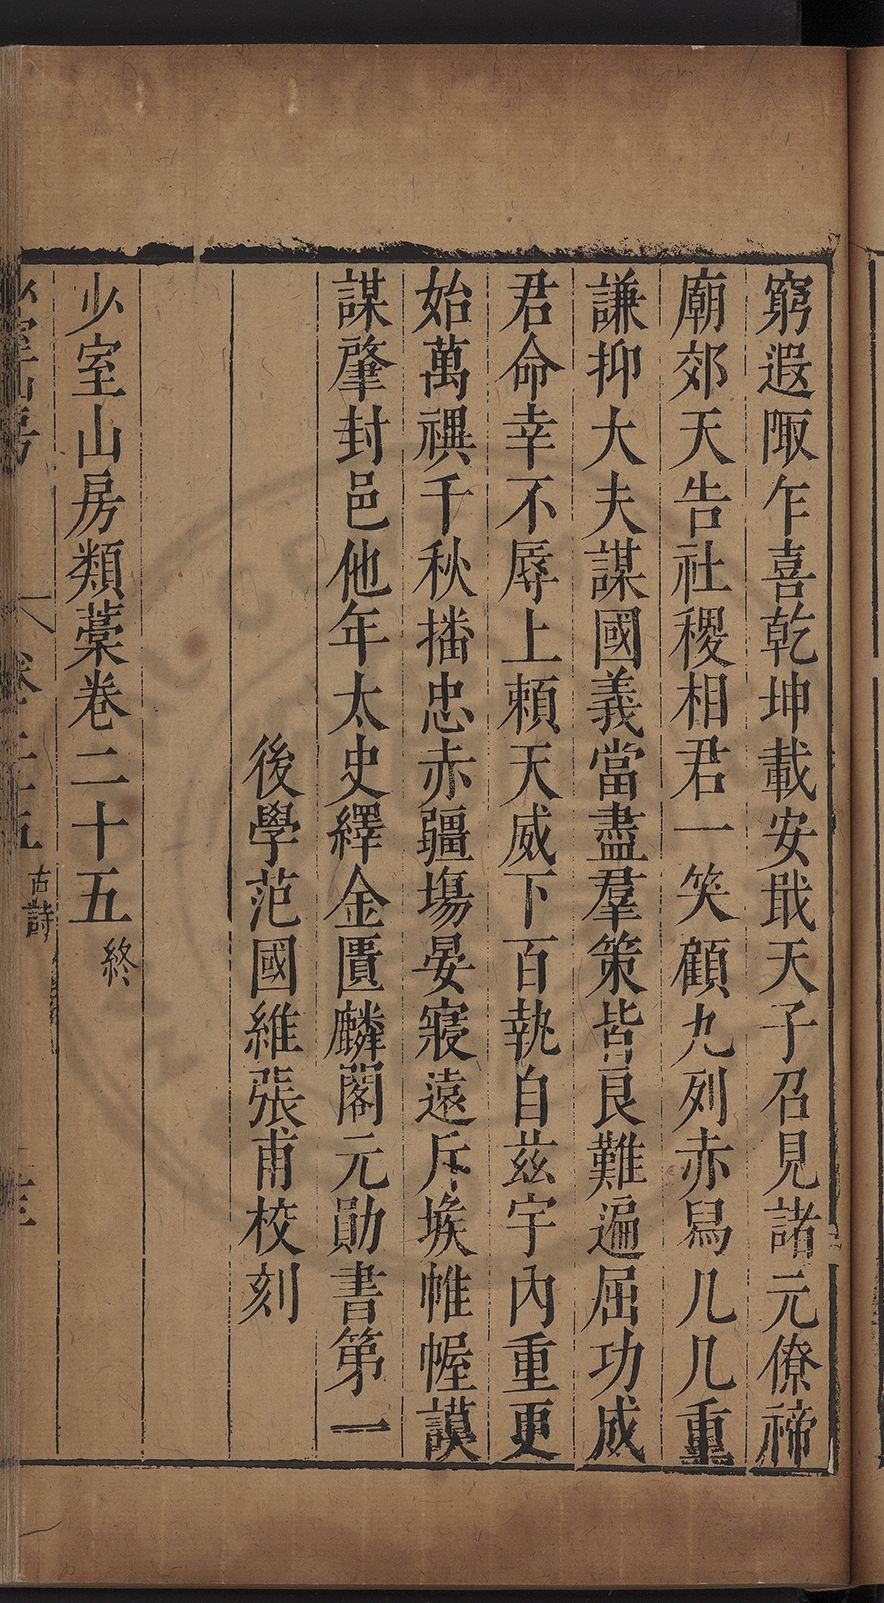 窮遐陬乍喜乾坤載安戢天子召見諸元僚禘
廟郊天告社稷相君一笑顧九列赤舄几几重
謙抑大夫謀國義當盡羣策皆良難遍屈功成
君命幸不辱上頼天威下百執自茲宇內重更
始萬禩千秋播忠赤疆塲晏寢遠斥堠帷幄謨
謀肇封邑他年太史繹金匱麟閣元勛書第一
後學范國維張甫校刻
少室山房類藁卷二十五終
少室山房
卷二十五
古詩